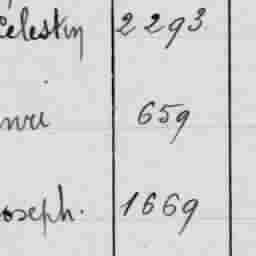 Célestin 2293
nri 659
oseph. 1669